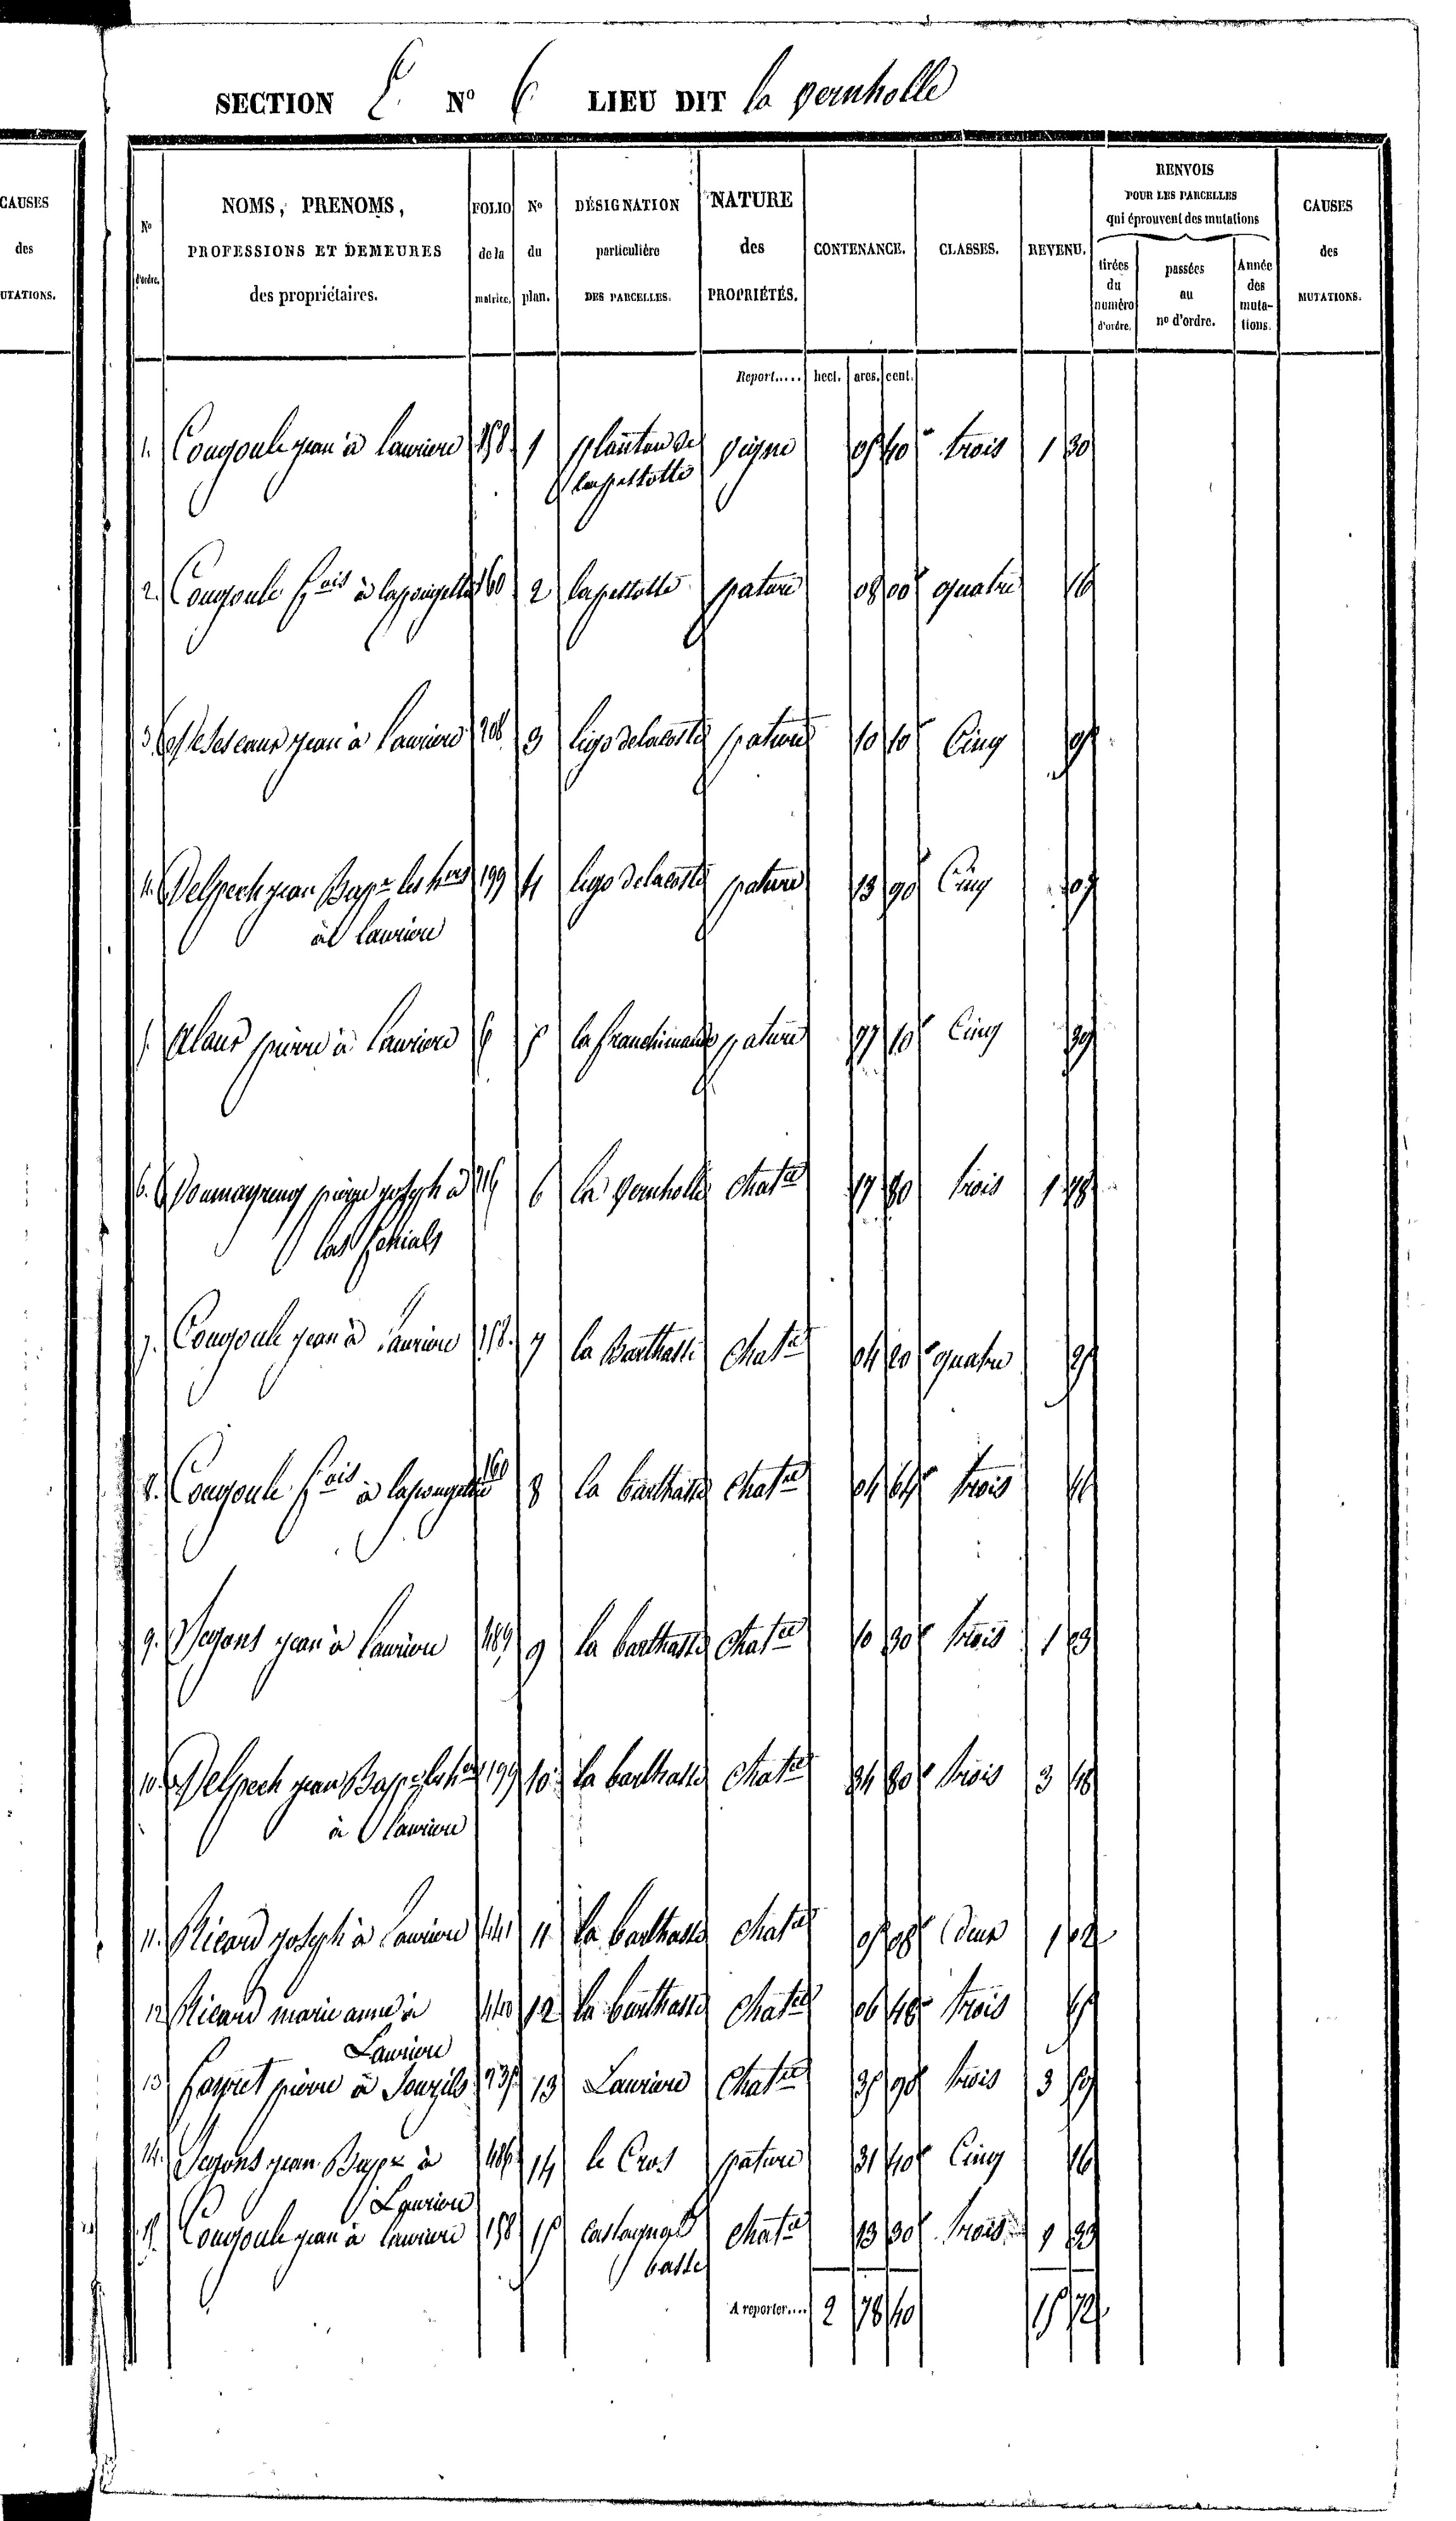 SECTION E. N° 6 LIEU DIT la vernholle
CAUSES
des
UTATIONS.
N° d'ordre.
NOMS, PRENOMS,
PROFESSIONS ET DEMEURES
des propriétaires.
FOLIO de la matrice.
N° du plan.
DÉSIGNATION particulière DES PARCELLES.
NATURE des PROPRIÉTÉS.
CONTENANCE.
CLASSES.
REVENU.
RENVOIS
POUR LES PARCELLES
qui éprouvent des mutations
tirées du numéro d'ordre.
passées au n° d'ordre.
Année des mutations.
CAUSES des MUTATIONS.
Report..... hect. ares. cent.
1. Couyoule jean à lauriere 158 1 vigne 05 40 trois 1 30
2. Couyoule f.ois à 160 2 pature 08 00 quatre 16
3. jean à lauriere 208 3 pature 10 10 Cinq 05
4. Delpech jean Bap.te les h.ers 199 4 pature 13 90 Cinq 07
à lauriere
5. Alaux pierre à lauriere 6 5 pature 77 10 Cinq 39
6. pierre joseph à 216 6 la vernholle chat.re 17 80 trois 1 78
las fenials
7. Couyoule jean à lauriere 158. 7 la Barthasse chat.re 04 20 quatre 25
8. Couyoule f.ois à 160 8 la barthasse chat.re 04 64 trois 46
9. jean à lauriere 489 9 la barthasse chat.re 10 30 trois 1 03
10. Delpech jean Bap.te les h.ers 199 10 la barthasse chat.re 34 80 trois 3 48
à lauriere
11. Ricard joseph à lauriere 441 11 la barthasse chat.re 05 08 deux 1 02
12 Ricard marie anne à 440 12 la barthasse chat.re 06 48 trois 65
Lauriere
13 pierre à 235 13 Lauriere chat.re 35 90 trois 3 59
14. jean Bap.te à 486 14 le Cros pature 31 40 Cinq 16
Lauriere
15. Couyoule jean à lauriere 158 15 chat.re 13 30 trois 1 33
basse
A reporter.... 2 78 40 15 72